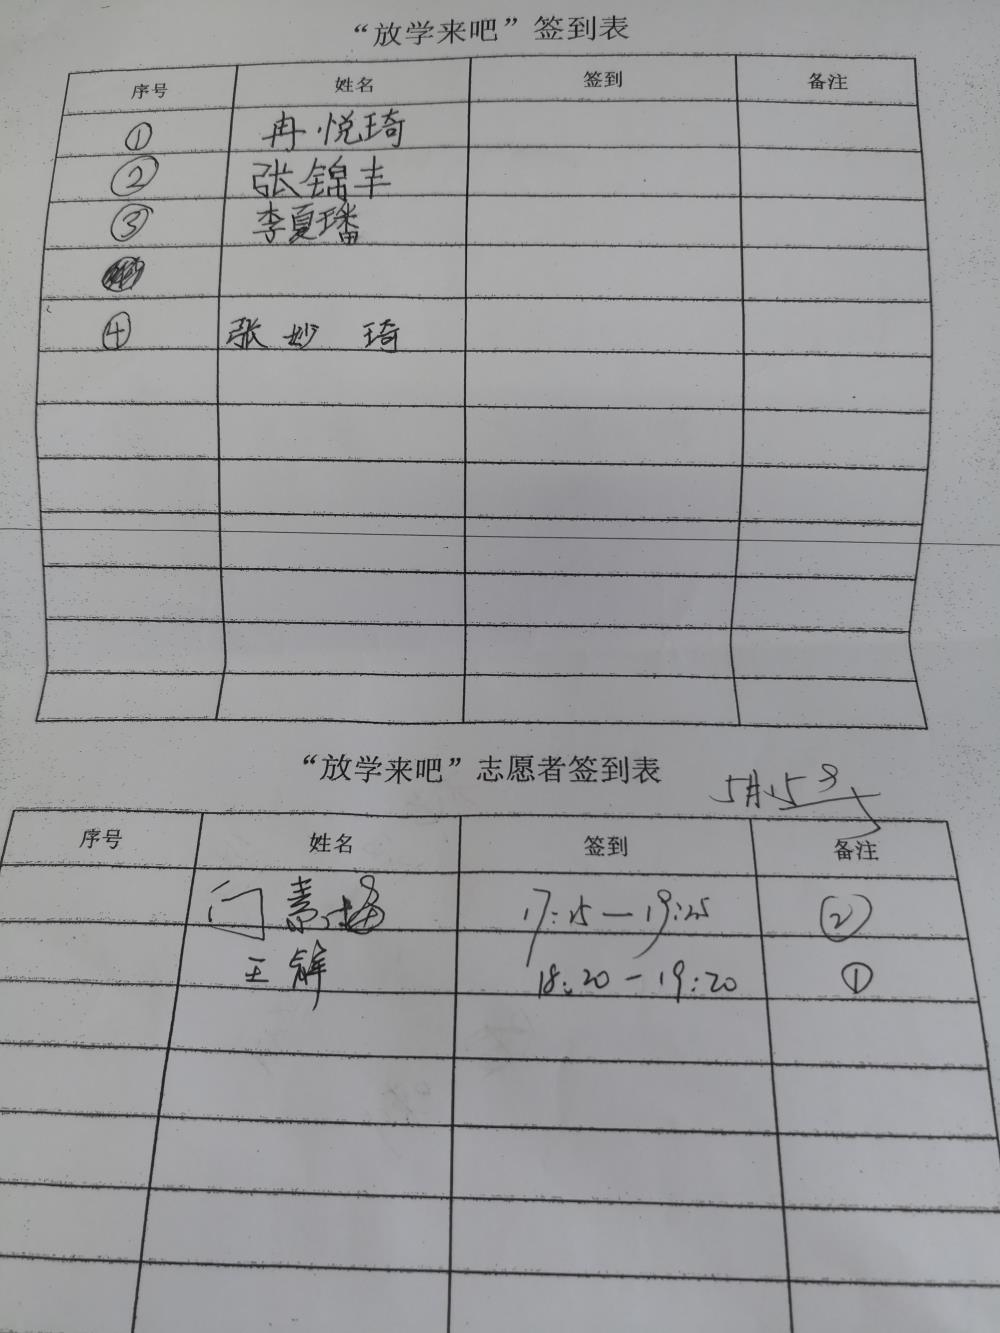 “放学来吧”签到表
序号 姓名 签到 备注
① 冉悦琦
② 张锦丰
③ 李夏璠
④ 张妙琦
“放学来吧”志愿者签到表
5月15号
序号 姓名 签到 备注
闫 17:25—19:25 ②
王 18:20—19:20 ①